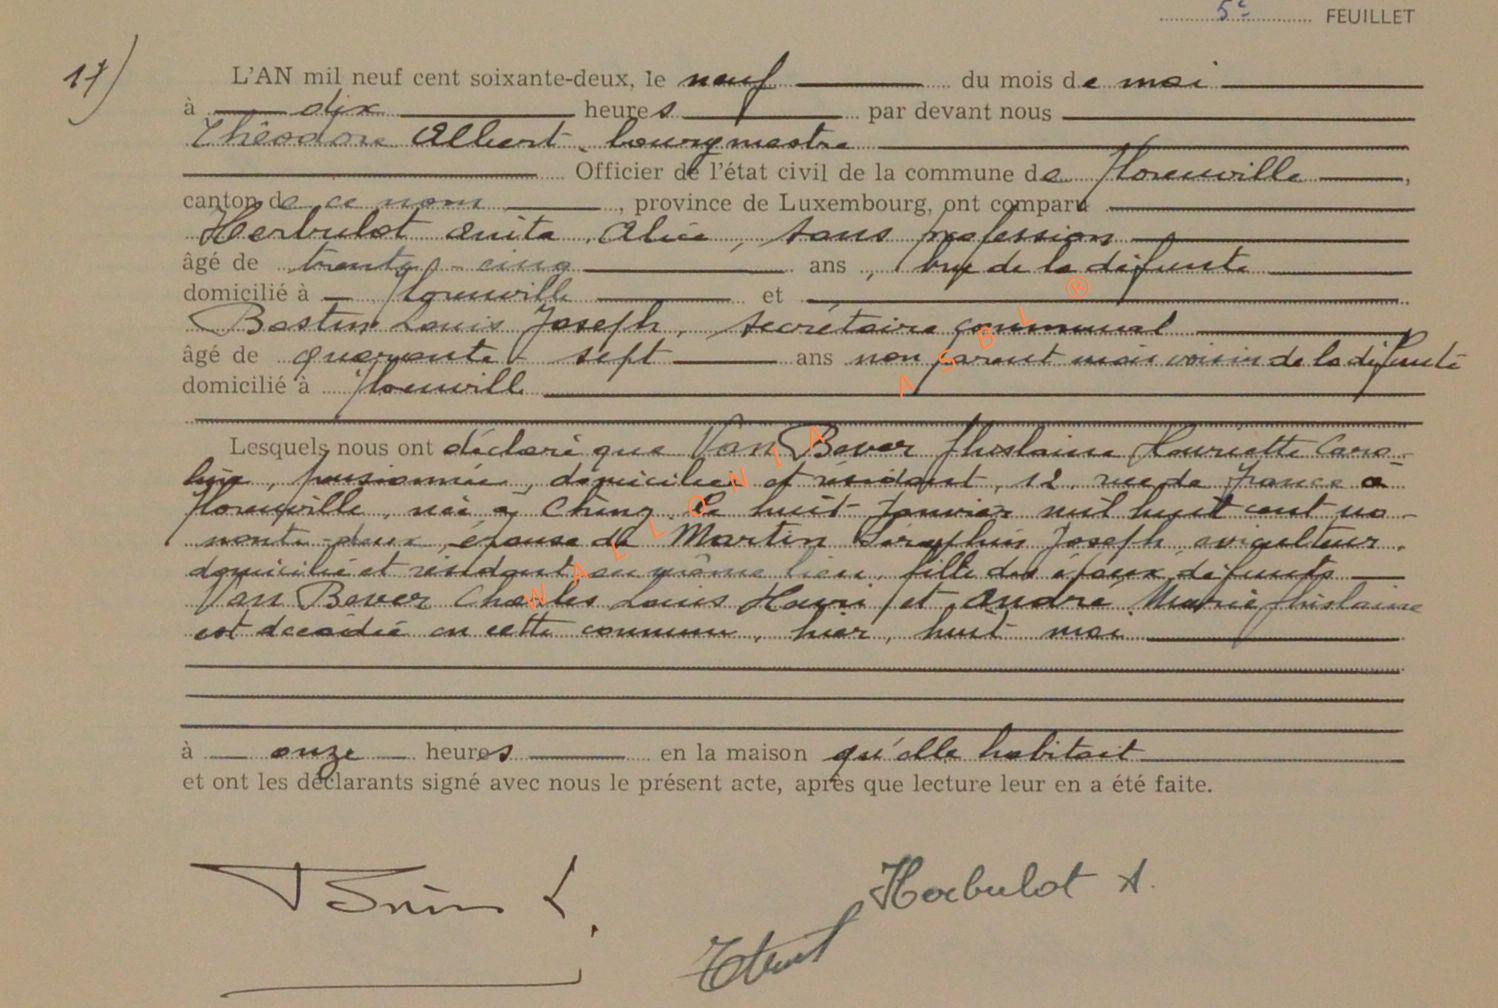 5e FEUILLET
17)
L'AN mil neuf cent soixante-deux, le neuf du mois de mai
à dix heures par devant nous
Théodore Albert, bourgmestre
Officier de l'état civil de la commune de Florenville,
canton de ce nom, province de Luxembourg, ont comparu
Herbulot Anita, Alice, sans profession
âgé de trente-cinq ans, bru de la défunte
domicilié à Florenville et
Bastin Louis Joseph, secrétaire communal
âgé de quarante-sept ans non parent mais voisin de la défunte
domicilié à Florenville
Lesquels nous ont déclaré que Van Bever Ghislaine Henriette Caro-
line, pensionnée, domiciliée et résidant, 12, rue de France à
Florenville, née à Chiny le huit janvier mil huit cent no-
nante-deux, épouse de Martin Séraphin Joseph, aviculteur,
domicilié et résidant au même lieu, fille des époux défunts
Van Bever Charles Louis Henri et André Marie Ghislaine
est décédée en cette commune, hier, huit mai
à onze heures en la maison qu'elle habitait
et ont les déclarants signé avec nous le présent acte, après que lecture leur en a été faite.
Herbulot A.
WALLONIA ASBL ®